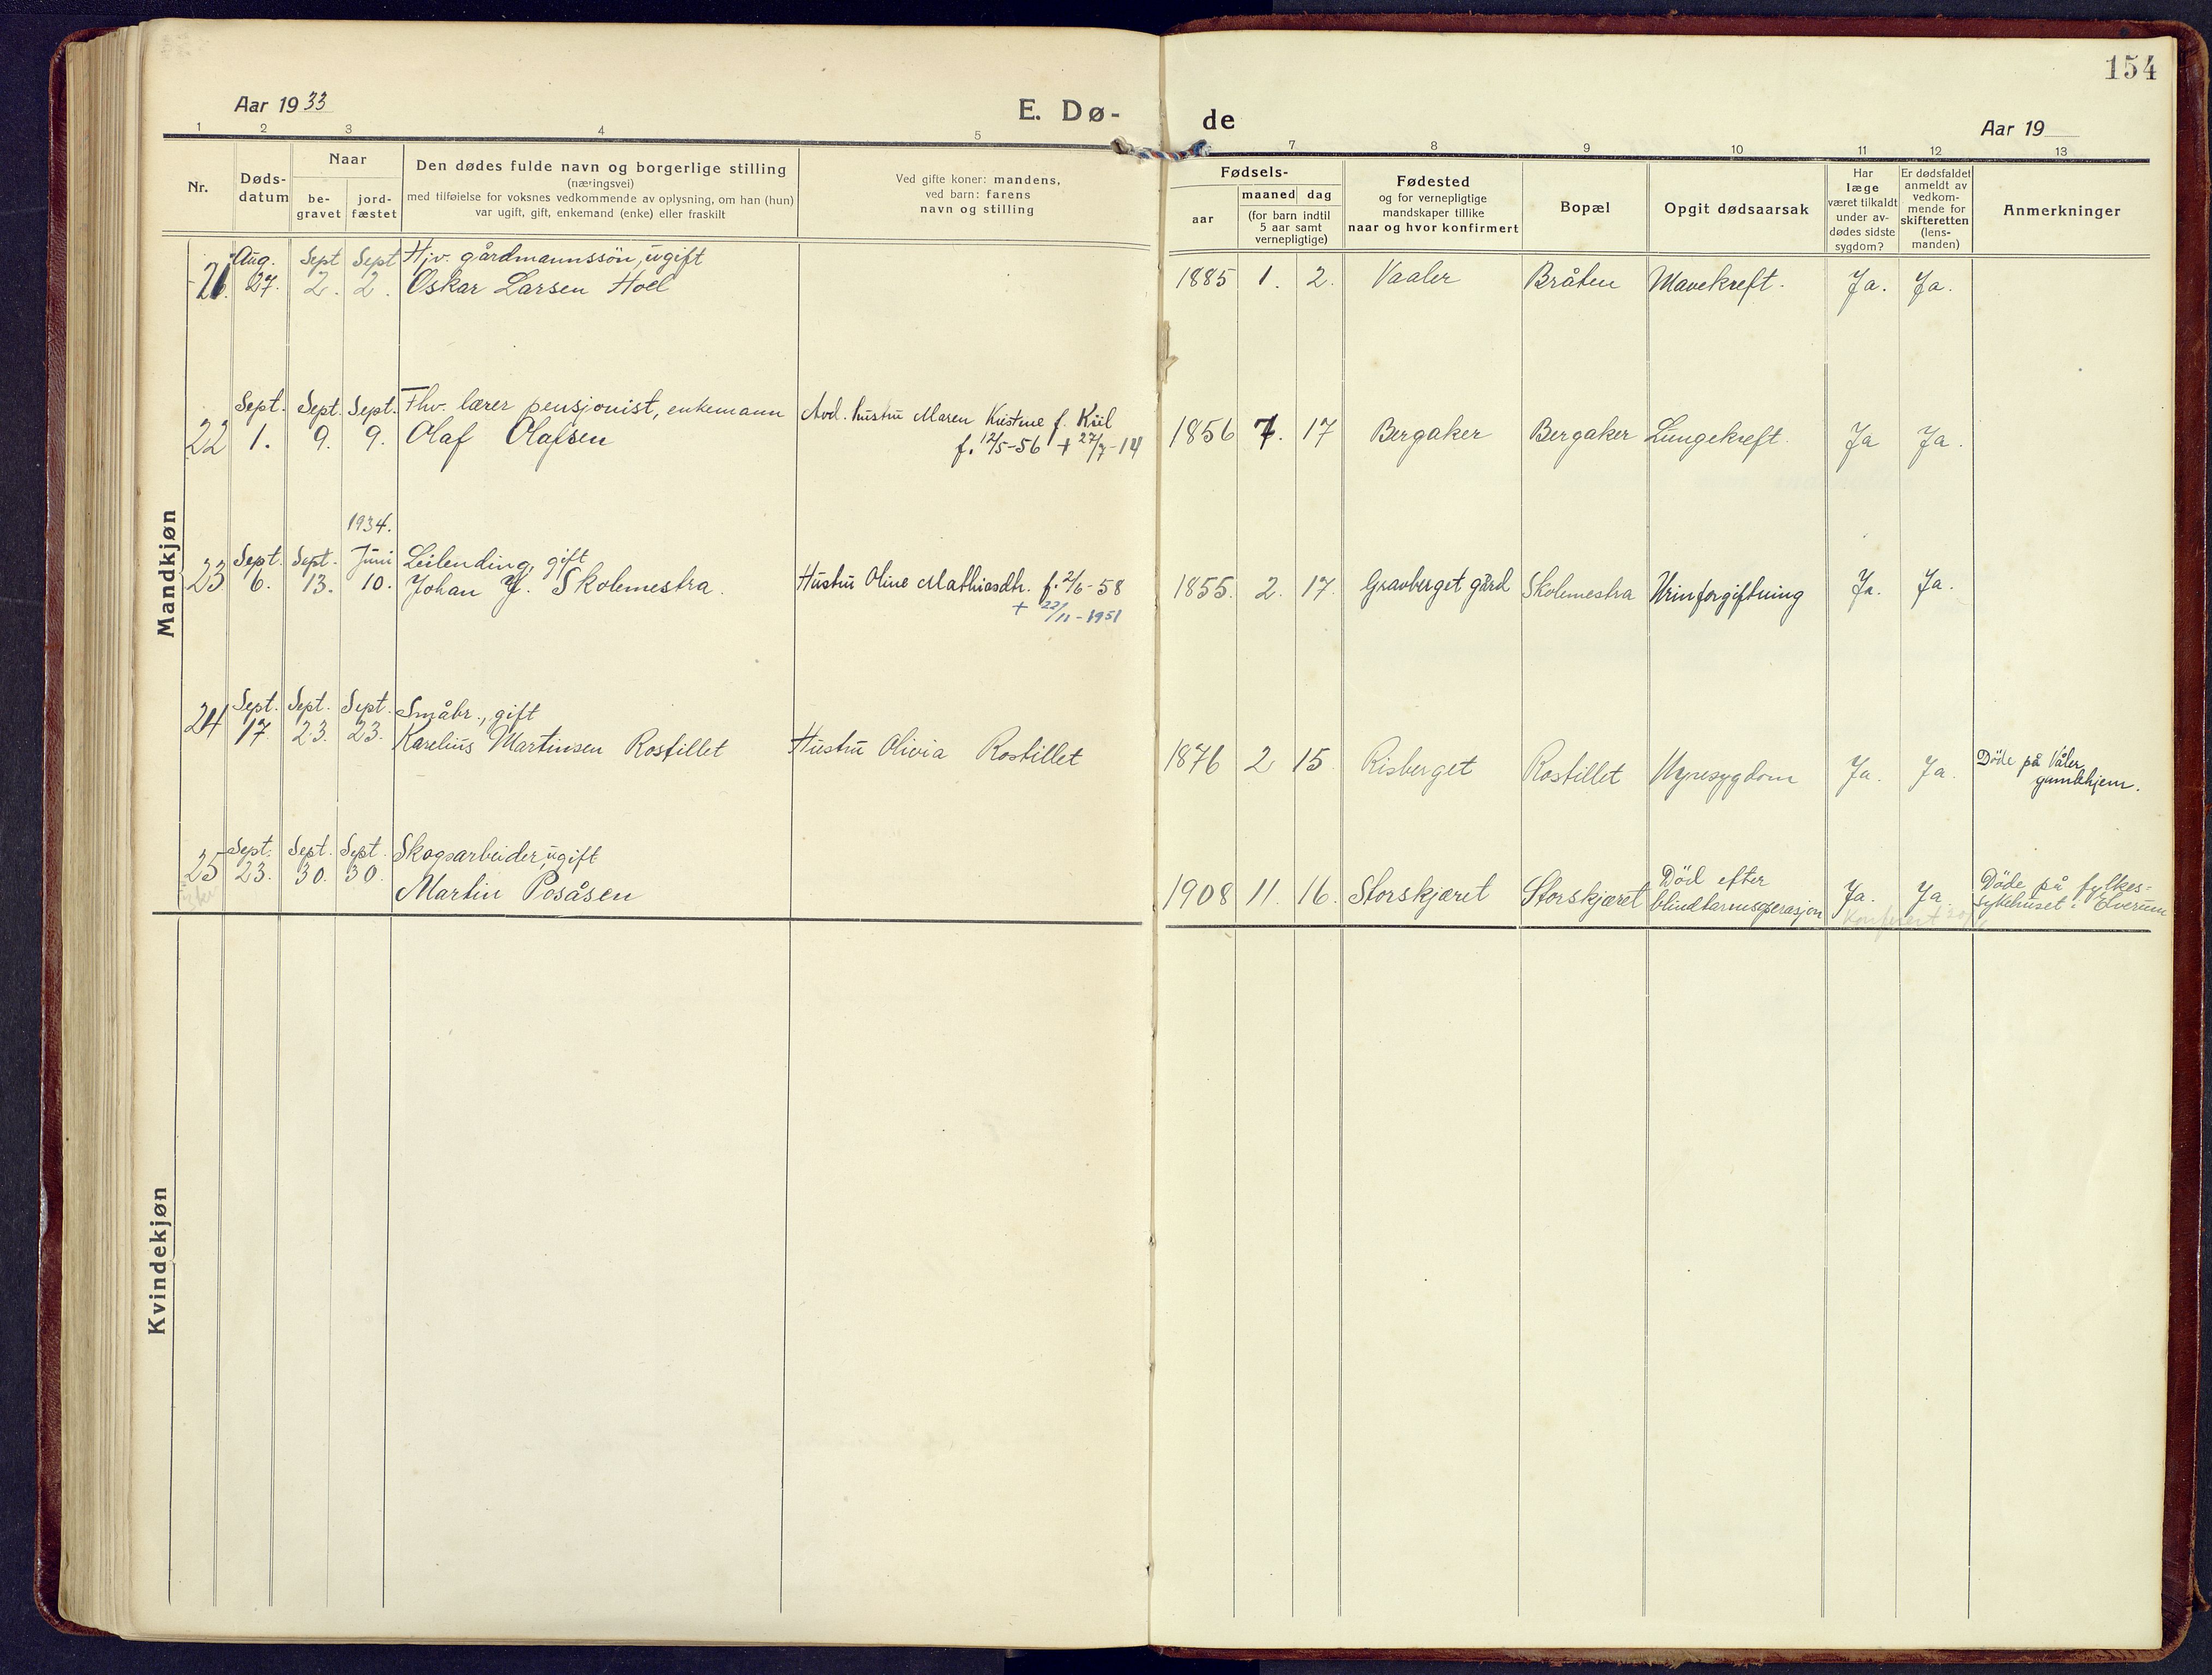 154
Aar 1933
E. Dø-
de
Aar 19
1 2 3 4 5 7 8 9 10 11 12 13
Nr.
Døds-
datum
Naar
be-
gravet
jord-
fæstet
Den dødes fulde navn og borgerlige stilling
(næringsvei)
med tilføielse for voksnes vedkommende av oplysning, om han (hun)
var ugift, gift, enkemand (enke) eller fraskilt
Ved gifte koner: mandens,
ved barn: farens
navn og stilling
Fødsels-
aar
maaned dag
(for barn indtil
5 aar samt
vernepligtige)
Fødested
og for vernepligtige
mandskaper tillike
naar og hvor konfirmert
Bopæl
Opgit dødsaarsak
Har
læge
været tilkaldt
under av-
dødes sidste
sygdom?
Er dødsfaldet
anmeldt av
vedkom-
mende for
skifteretten
(lens-
manden)
Anmerkninger
Mandkjøn
Aug. Sept Sept Hjv. gårdmannssön, ugift
21. 27. 2. 2. Oskar Larsen Hoel 1885 1. 2. Vaaler Bråten Mavekreft. Ja. Ja.
Sept. Sept. Sept. Fhv. lærer pensjonist, enkemann Avd. hustru Maren Kristine f. Kiil
22 1. 9. 9. Olaf Olafsen f. 12/5-56 + 27/7-14 1856 7. 17 Bergaker Bergaker Lungekreft. Ja Ja.
1934.
Sept. Sept. Juni Leilending, gift
23 6. 13. 10. Johan J. Skolemestra. Hustru Oline Mathiasdtr. f. 2/6-58 1855. 2. 17. Gravberget gård Skolemestra Urinforgiftning Ja. Ja.
+ 22/11-1951
Sept. Sept. Sept. Småbr., gift
24 17. 23. 23. Karelius Martinsen Rostillet Hustru Olivia Rostillet 1876 2 15. Risberget Rostillet Nyresygdom Ja. Ja. Döde på Våler
gamlehjem.
Sept. Sept. Sept. Skogsarbeider, ugift
25 23. 30. 30. Martin Posåsen 1908 11. 16. Storskjæret Storskjæret Död efter
blindtarmsoperasjon Ja. Ja. Döde på fylkes-
sykehuset i Elverum
Konferert
Kvindekjøn